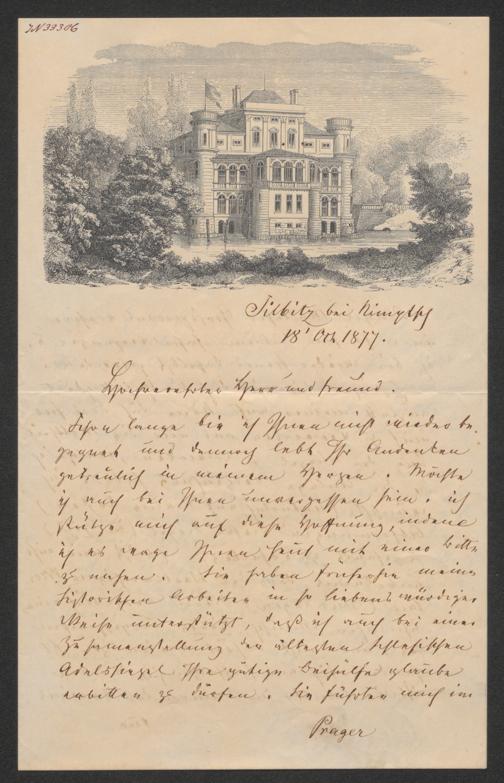 IN 33306
Silbitz bei Nimptsch
18' Oct 1877.
Hochverehrter Herr und Freund.
Schon lange bin ich Ihnen nicht wieder be-
gegnet und dennoch lebt Ihr Andenken
getreulich in meinem Herzen. Möchte
ich auch bei Ihnen unvergessen sein. ich
stütze mich auf diese Hoffnung, indem
ich es wage Ihnen heut mit einer Bitte
zu nahen. Sie haben früherhin meine
historischen Arbeiten in so liebenswürdiger
Weise unterstützt, daß ich auch bei einer
Zusammenstellung der ältesten schlesischen
Adelssiegel Ihre gütige Beihülfe glaube
erbitten zu dürfen. Sie führten mich im
Prager